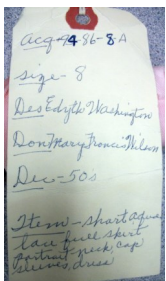 acq-94-86-8-A
size-8
Des Edyth Washington
Don Mary Francis Wilson
Dec-50s
Item-short aqua
lace full skirt
portrait neck, cap
sleeves, dress